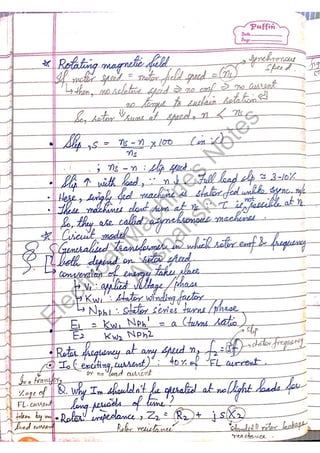 Puffin
Date
Page
* Rotating magnetic field
Synchronous
Speed.
If motor speed = motor field speed = (ns)
↳ then, no relative speed ⇒ no emf ⇒ no current
no torque to sustain rotation
So, rotor runs at speed, n < ns
• Slip, s = ns - n x 100 (in %)
ns
; ns - n : slip speed
• Slip ↑ with load, ∵ n↓. Full load slip = 3-10%
• Here, singly fed machine is stator fed unlike sync. m/c
• These machines don't run at ns ∵ T is not possible at ns
So, they are called asynchronous machines.
* Circuit model
Generalised transformer in which rotor emf & frequency
both depend on rotor speed
↳ conversion of energy takes place
↳ V1 : applied voltage / phase
↳ Kw1 : stator winding factor
↳ Nph1 : stator series turns / phase
E1 = Kw1 Nph1 = a (turns ratio)
E2 Kw2 Nph2
slip
• Rotor frequency at any speed n, f2 = sf
stator frequency
• I0 (exciting current) : 40% of FL current
or no load current
In a transfor
%age of
FL current
taken by no
load current
Q. Why Im shouldn't be operated at no/light loads for
long periods of time?
• Rotor impedance, Z2 = R2 + jsX2
Rotor resistance
standstill rotor leakage
reactance